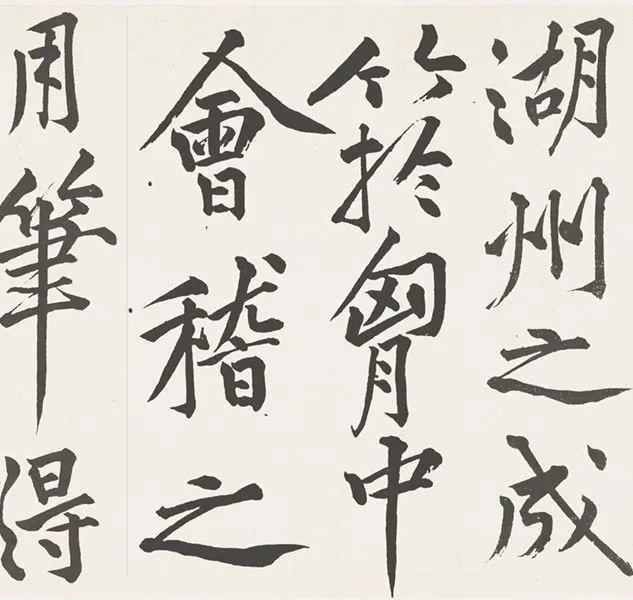 湖州之成
竹於胷中
會稽之
用筆得